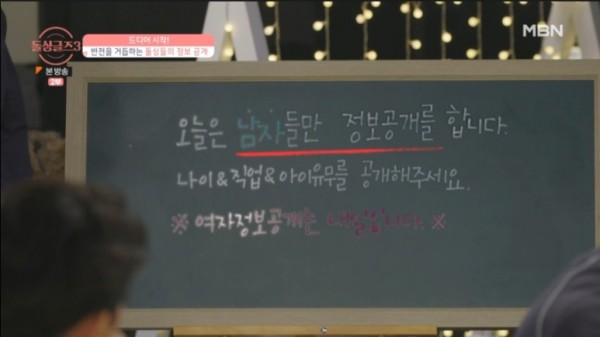 돌싱글즈3
드디어 시작!
반전을 거듭하는 돌싱들의 정보 공개
MBN
본방송
2부
오늘은 남자들만 정보공개를 합니다.
나이&직업&아이유무를 공개해주세요.
※ 여자정보공개는 내일입니다. ※